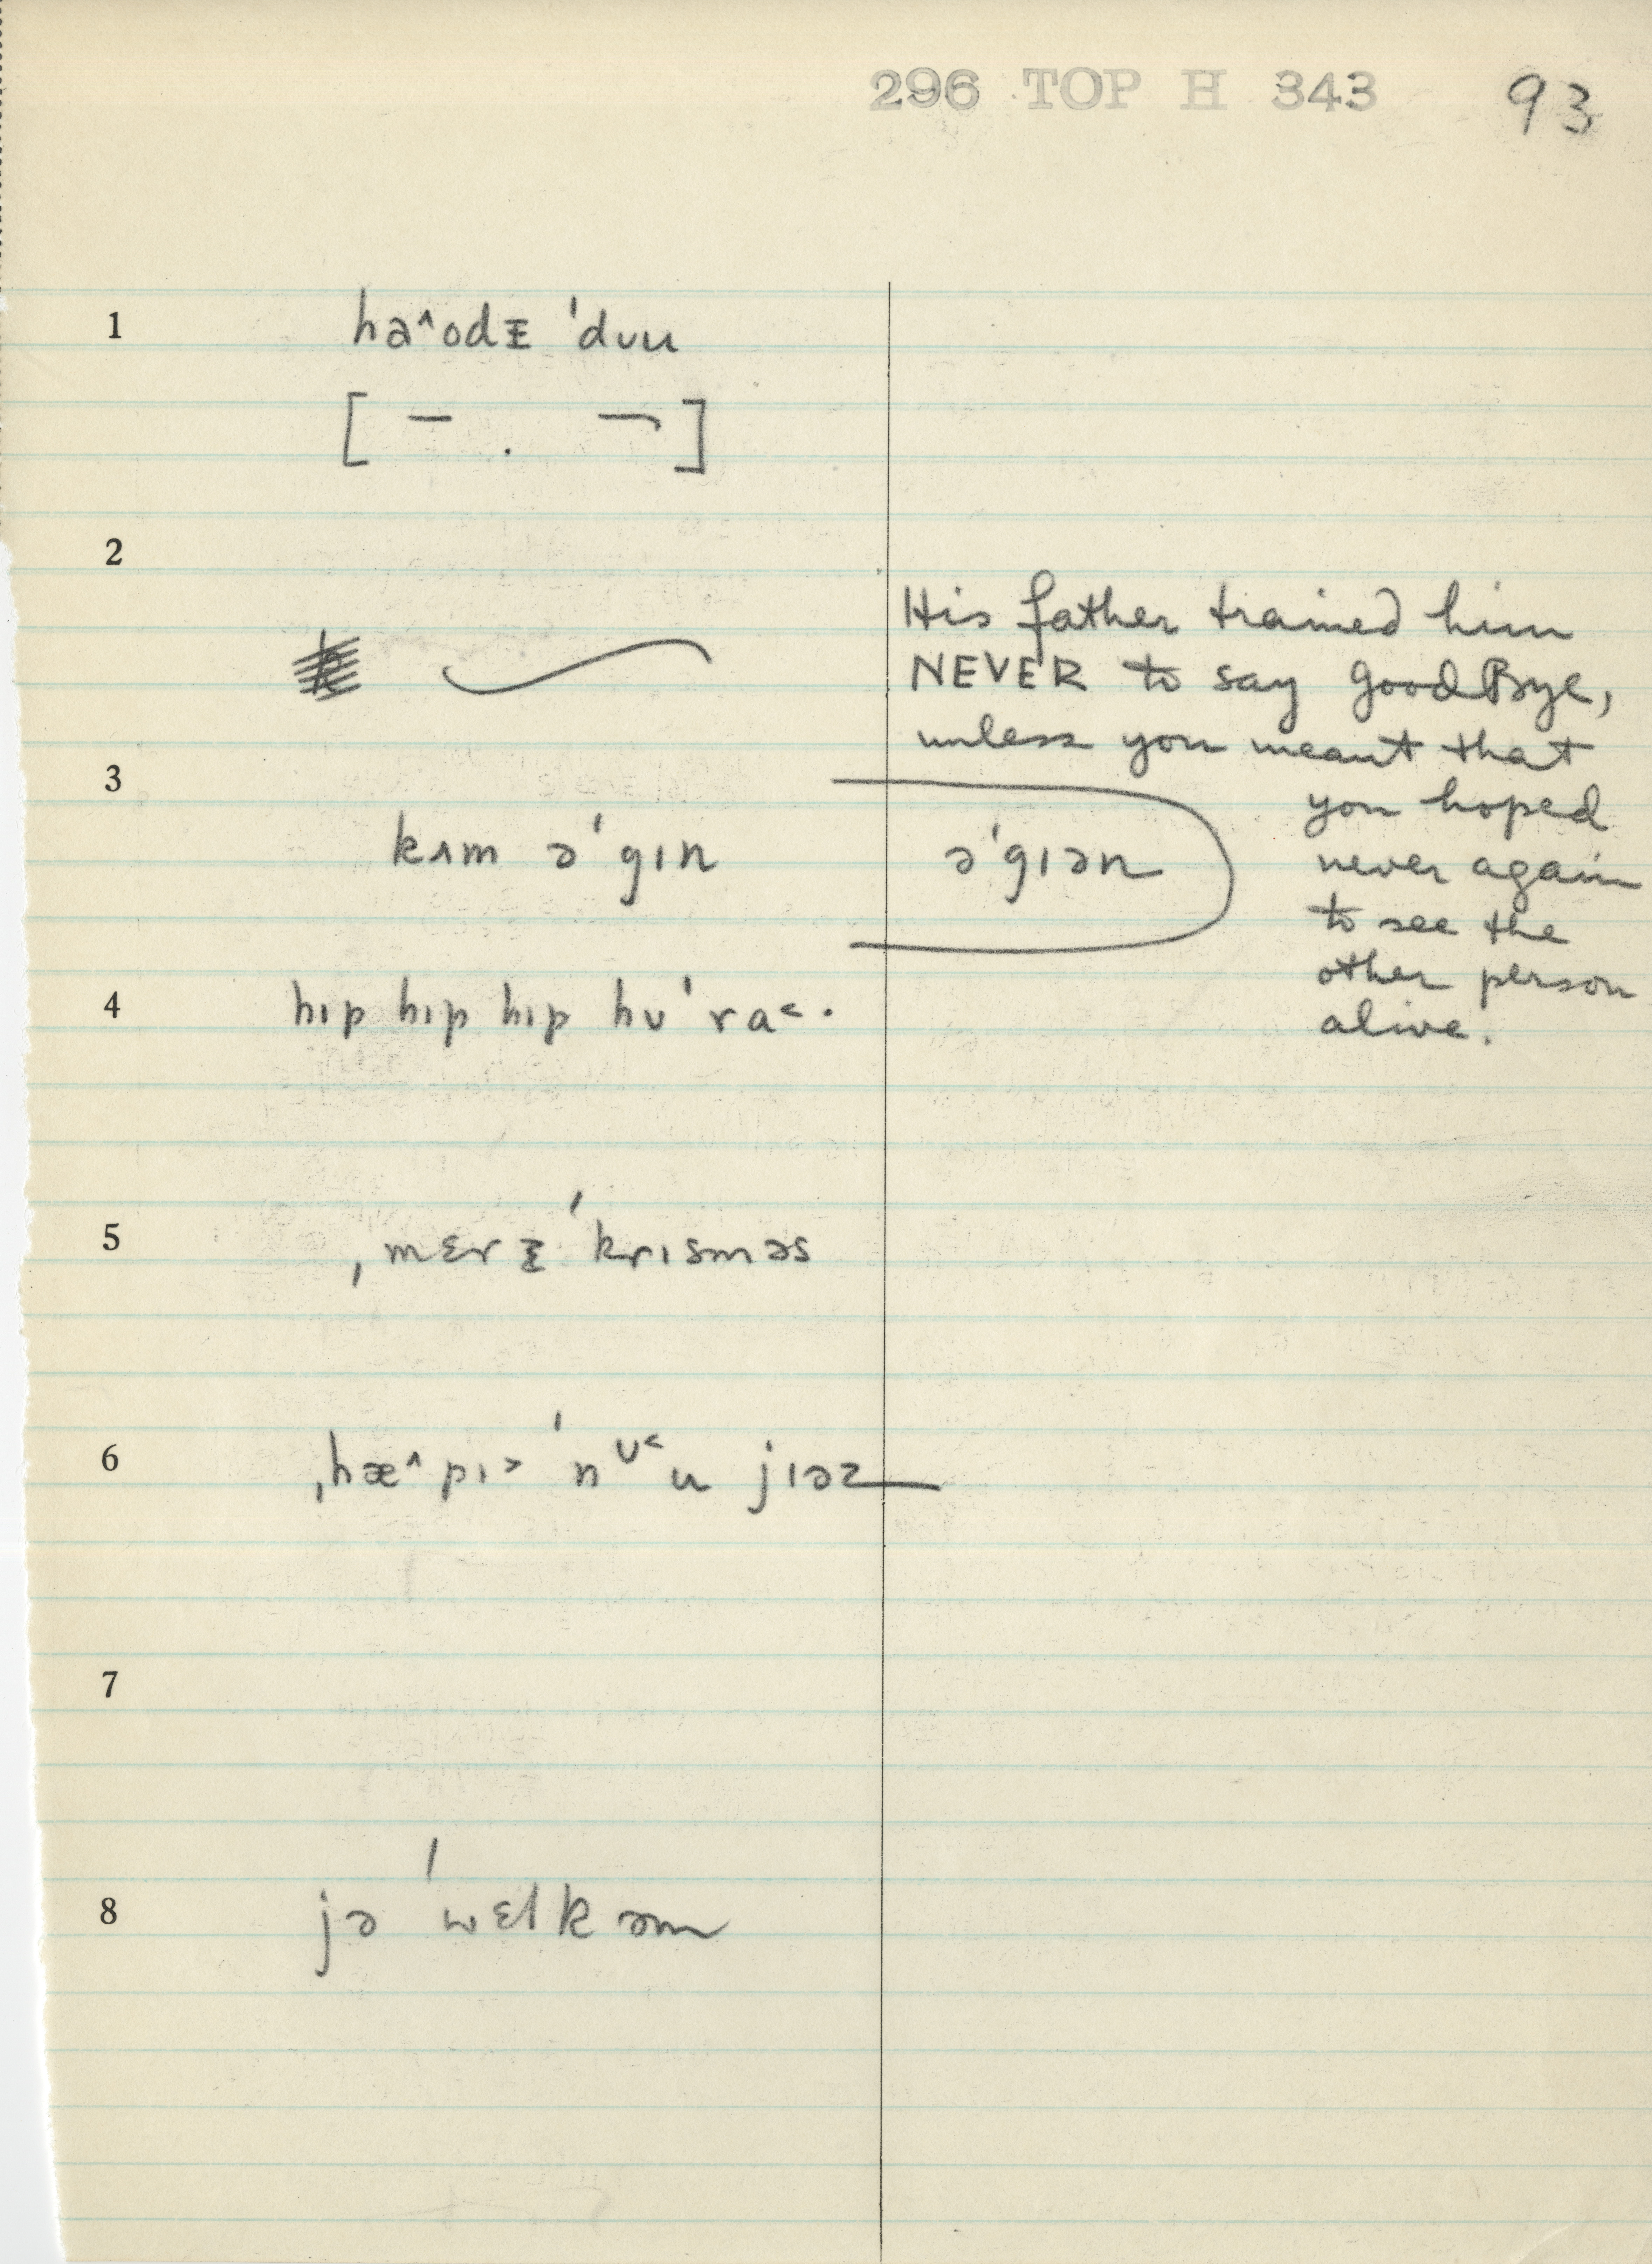 296 TOP H 343 93
1 ha˄odɪ̵ ˈdʊu
[ – . ¬ ]
2
His father trained him
NEVER to say GoodBye,
unless you meant that
3
you hoped
kʌm əˈgɪn əˈgɪən never again
to see the
other person
4 hɪp hɪp hɪp hʊˈra˂· alive.
5 ˌmɛrɪ̵ ˈkrɪsməs
6 ˌhæ˄pɪ˃ ˈnʊ˂u jɪəz
7
8 jə ˈwɛlkəm